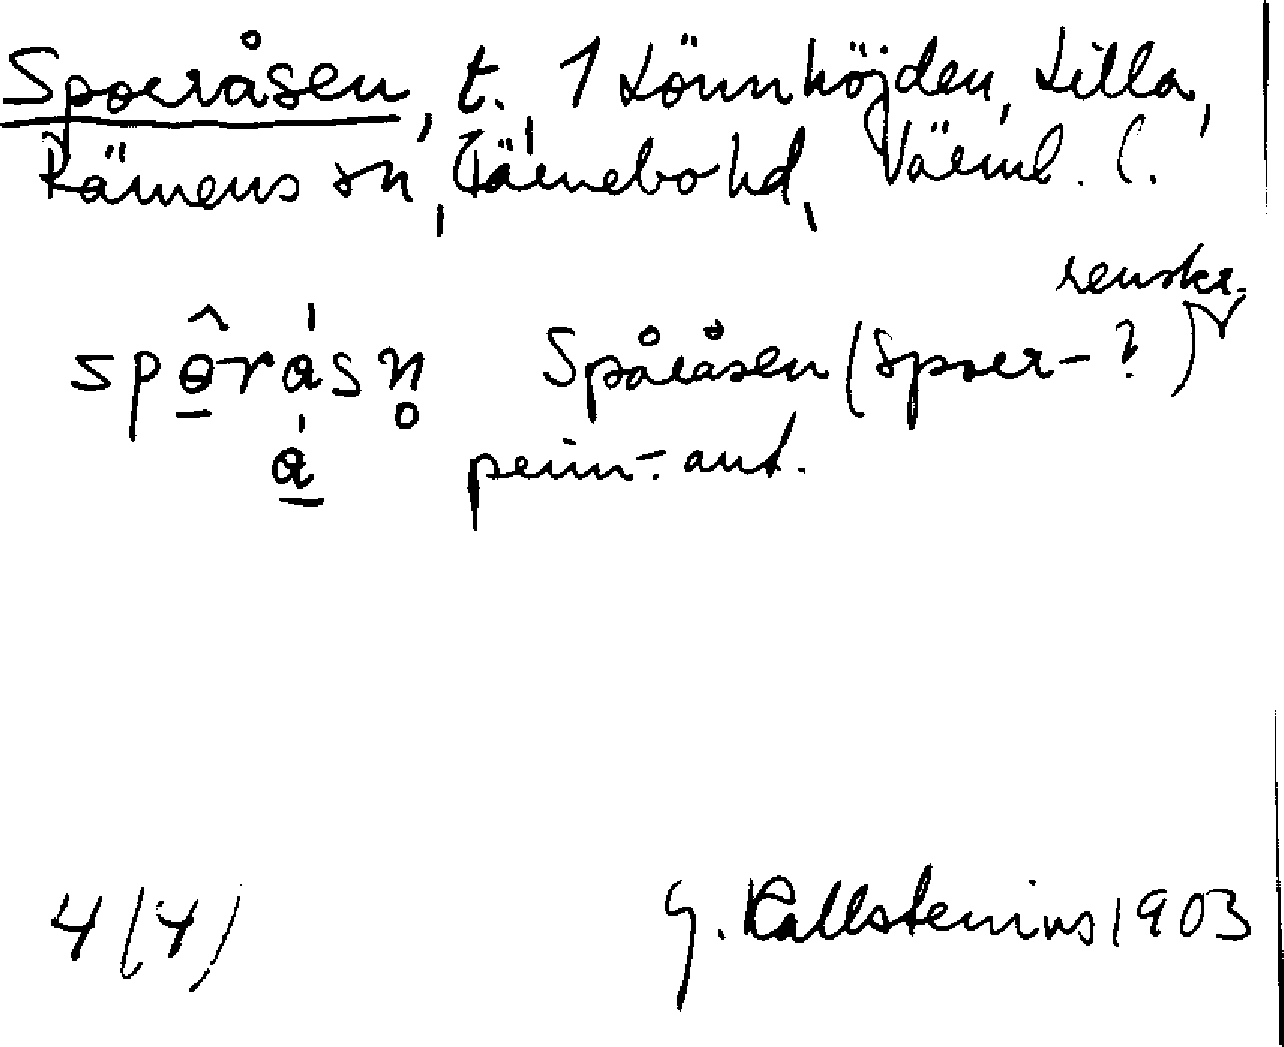 Sporråsen, t. 1 Lönnhöjden, Lilla,
Rämens sn, Färnebo hd, Värml. l.
renskr.
spôråsn̥ Spåråsen (Sporr-?)
å penn-ant.
4 (4) G. Kallstenius 1903